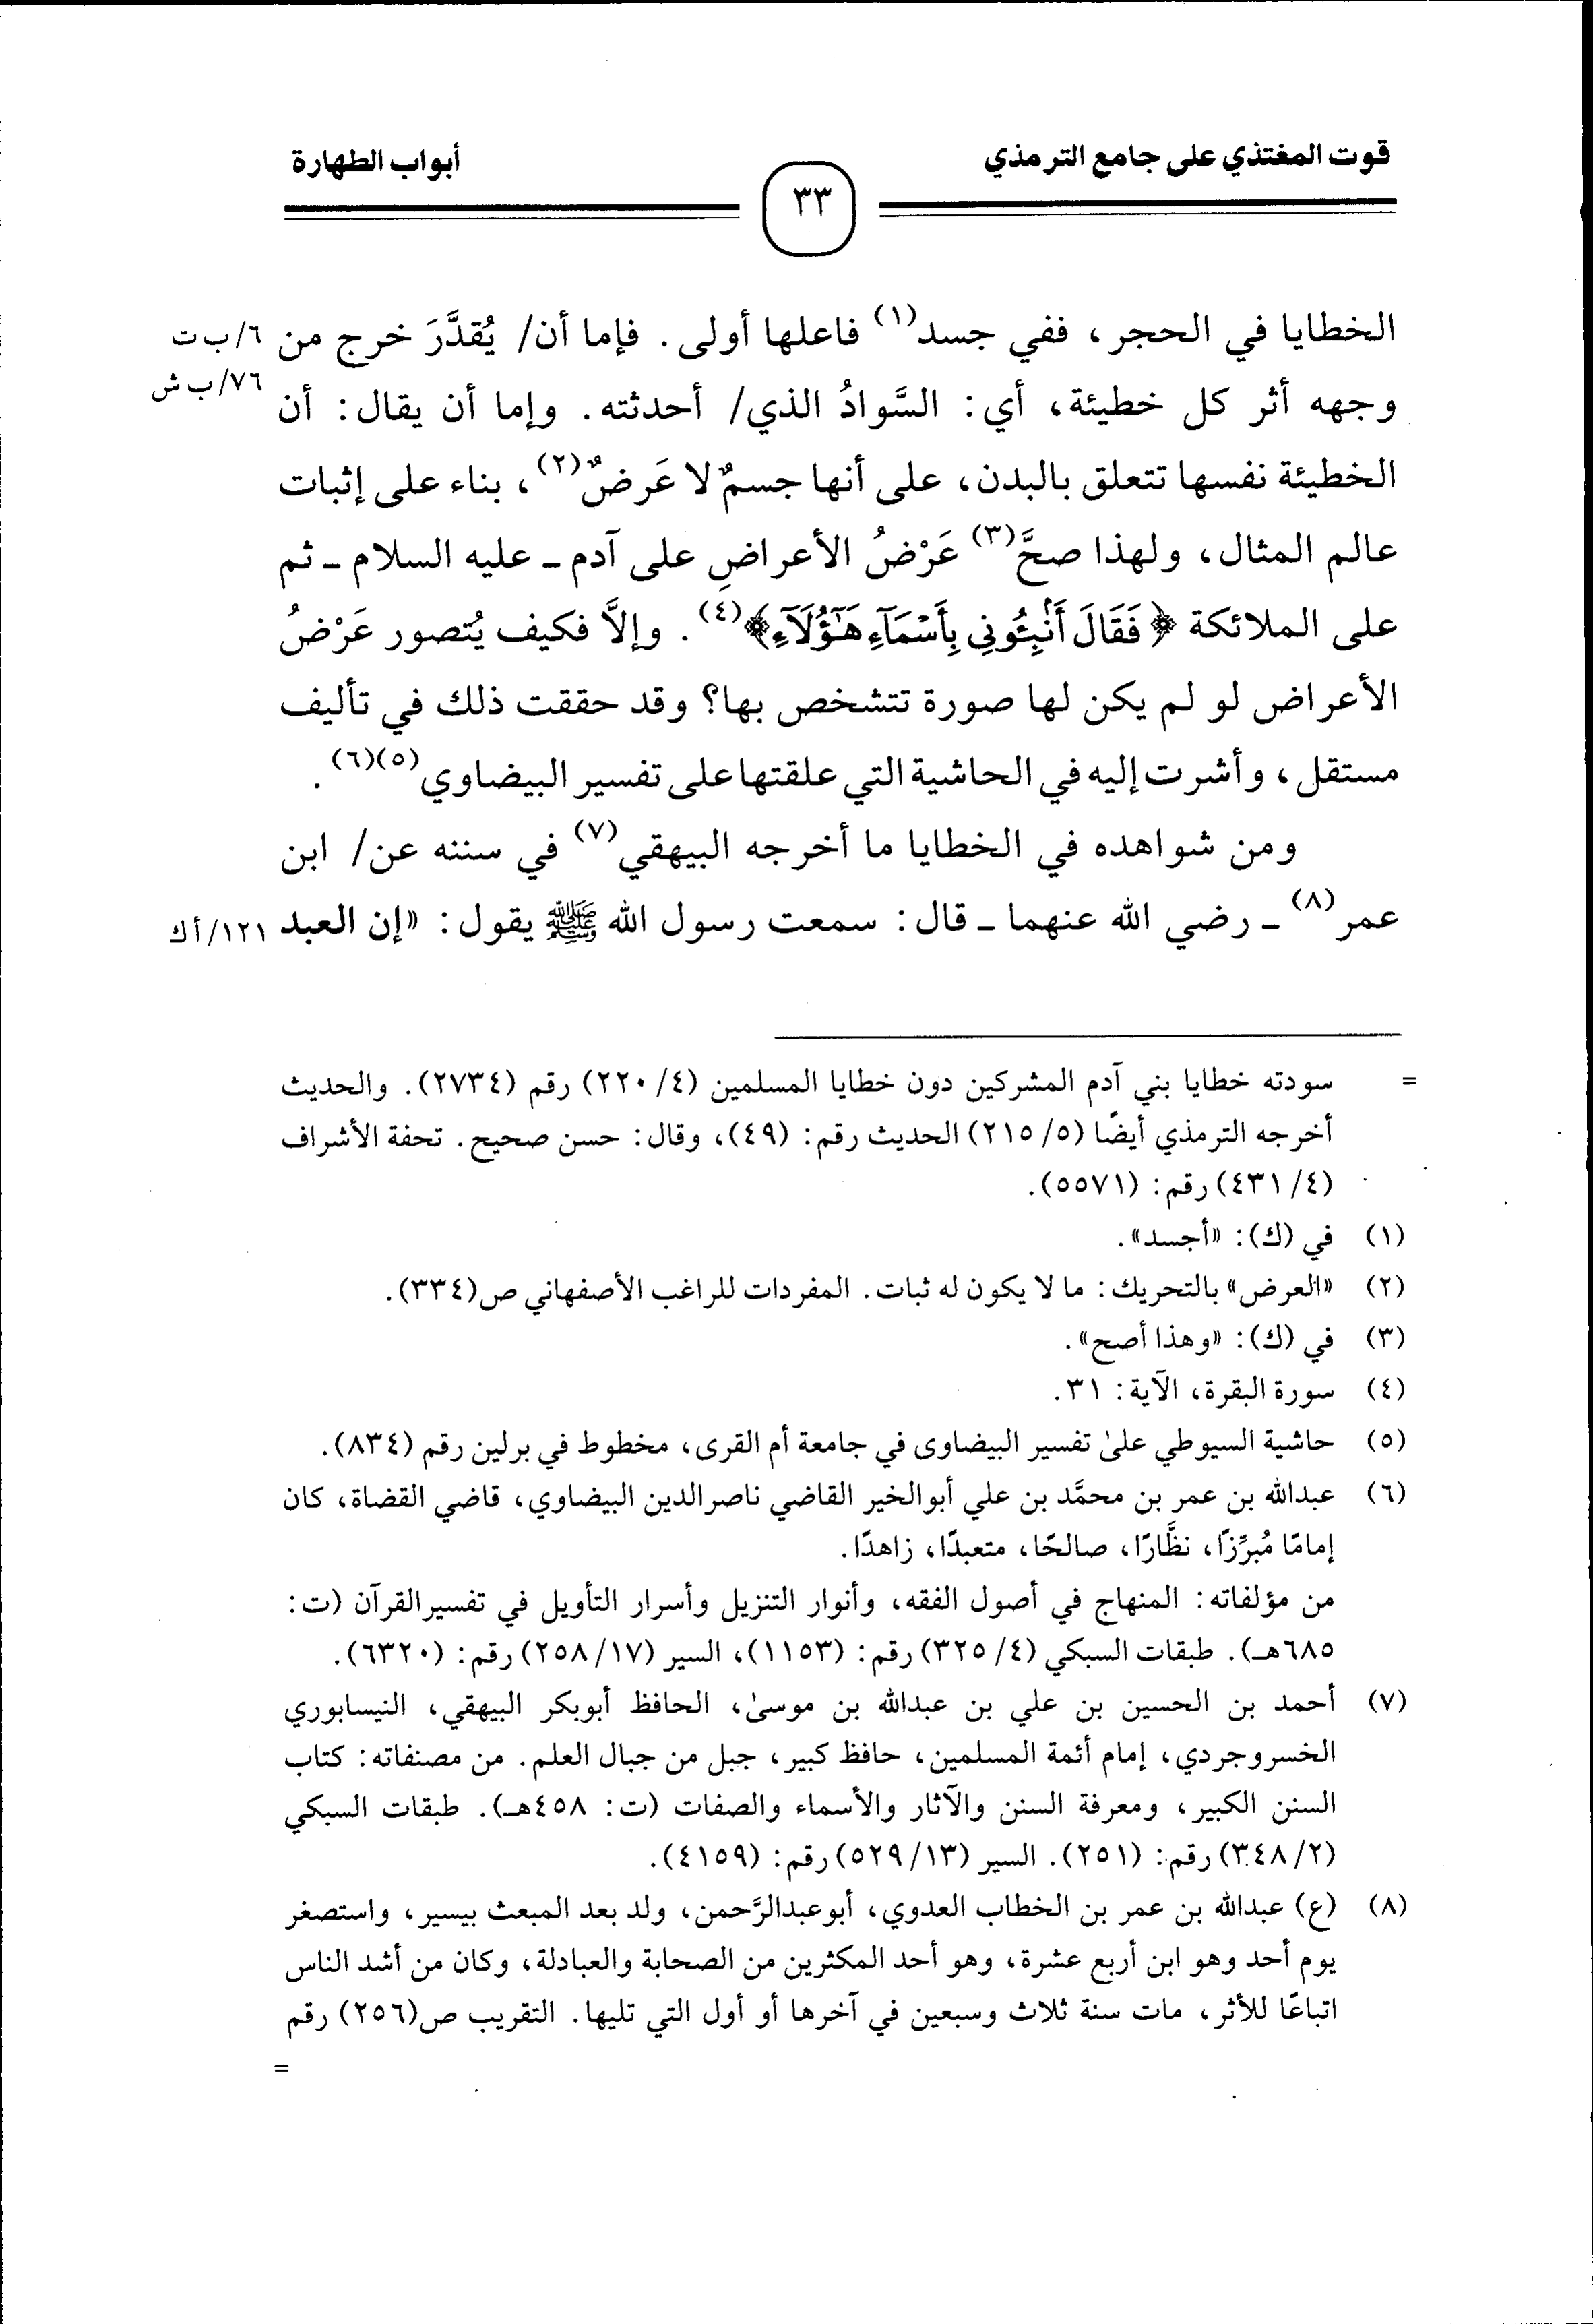 قوت المغتذي على جامع الترمذي
٣٣
أبواب الطهارة
الخطايا في الحجر، ففي جسد(١) فاعلها أولى. فإما أن/ يُقدَّرَ خرج من
٦/ب ت
وجهه أثر كل خطيئة، أي: السَّوادُ الذي/ أحدثته. وإما أن يقال: أن
٧٦/ب ش
الخطيئة نفسها تتعلق بالبدن، على أنها جسمٌ لا عَرضٌ(٢)، بناء على إثبات
عالم المثال، ولهذا صحَّ(٣) عَرْضُ الأعراضِ على آدم ـ عليه السلام ـ ثم
على الملائكة ﴿فَقَالَ أَنۢبِـُٔونِى بِأَسۡمَآءِ هَٰٓؤُلَآءِ﴾(٤). وإلاَّ فكيف يُتصور عَرْضُ
الأعراض لو لم يكن لها صورة تتشخص بها؟ وقد حققت ذلك في تأليف
مستقل، وأشرت إليه في الحاشية التي علقتها على تفسير البيضاوي(٥)(٦).
ومن شواهده في الخطايا ما أخرجه البيهقي(٧) في سننه عن/ ابن
عمر(٨) ـ رضي الله عنهما ـ قال: سمعت رسول الله ﷺ يقول: «إن العبد
١٢١/أ ك
= سودته خطايا بني آدم المشركين دون خطايا المسلمين (٢٢٠/٤) رقم (٢٧٣٤). والحديث
أخرجه الترمذي أيضًا (٢١٥/٥) الحديث رقم: (٤٩)، وقال: حسن صحيح. تحفة الأشراف
(٤٣١/٤) رقم: (٥٥٧١).
(١) في (ك): «أجسد».
(٢) «العرض» بالتحريك: ما لا يكون له ثبات. المفردات للراغب الأصفهاني ص(٣٣٤).
(٣) في (ك): «وهذا أصح».
(٤) سورة البقرة، الآية: ٣١.
(٥) حاشية السيوطي علىٰ تفسير البيضاوى في جامعة أم القرى، مخطوط في برلين رقم (٨٣٤).
(٦) عبدالله بن عمر بن محمَّد بن علي أبوالخير القاضي ناصرالدين البيضاوي، قاضي القضاة، كان
إمامًا مُبرِّزًا، نظَّارًا، صالحًا، متعبدًا، زاهدًا.
من مؤلفاته: المنهاج في أصول الفقه، وأنوار التنزيل وأسرار التأويل في تفسيرالقرآن (ت:
٦٨٥هـ). طبقات السبكي (٣٢٥/٤) رقم: (١١٥٣)، السير (٢٥٨/١٧) رقم: (٦٣٢٠).
(٧) أحمد بن الحسين بن علي بن عبدالله بن موسىٰ، الحافظ أبوبكر البيهقي، النيسابوري
الخسروجردي، إمام أئمة المسلمين، حافظ كبير، جبل من جبال العلم. من مصنفاته: كتاب
السنن الكبير، ومعرفة السنن والآثار والأسماء والصفات (ت: ٤٥٨هـ). طبقات السبكي
(٣٤٨/٢) رقم: (٢٥١). السير (٥٢٩/١٣) رقم: (٤١٥٩).
(٨) (ع) عبدالله بن عمر بن الخطاب العدوي، أبوعبدالرَّحمن، ولد بعد المبعث بيسير، واستصغر
يوم أحد وهو ابن أربع عشرة، وهو أحد المكثرين من الصحابة والعبادلة، وكان من أشد الناس
اتباعًا للأثر، مات سنة ثلاث وسبعين في آخرها أو أول التي تليها. التقريب ص(٢٥٦) رقم
=